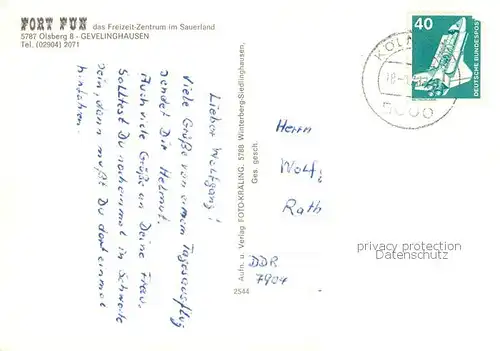 FORT FUN das Freizeit-Zentrum im Sauerland
5787 Olsberg 8 - GEVELINGHAUSEN
Tel. (02904) 2071
Lieber Wolfgang!
Viele Grüße von einem Tagesausflug
sendet Dir Helmut.
Auch viele Grüße an Deine Frau.
Solltest Du noch einmal in
sein, dann mußt Du dort einmal
hinfahren.
Aufn. u. Verlag FOTO-KRALING, 5788 Winterberg-Siedlinghausen,
Ges. gesch.
2544
40
DEUTSCHE BUNDESPOST
KÖLN
5000
Herrn
Wolf
Rath
DDR
7904
privacy protection
Datenschutz